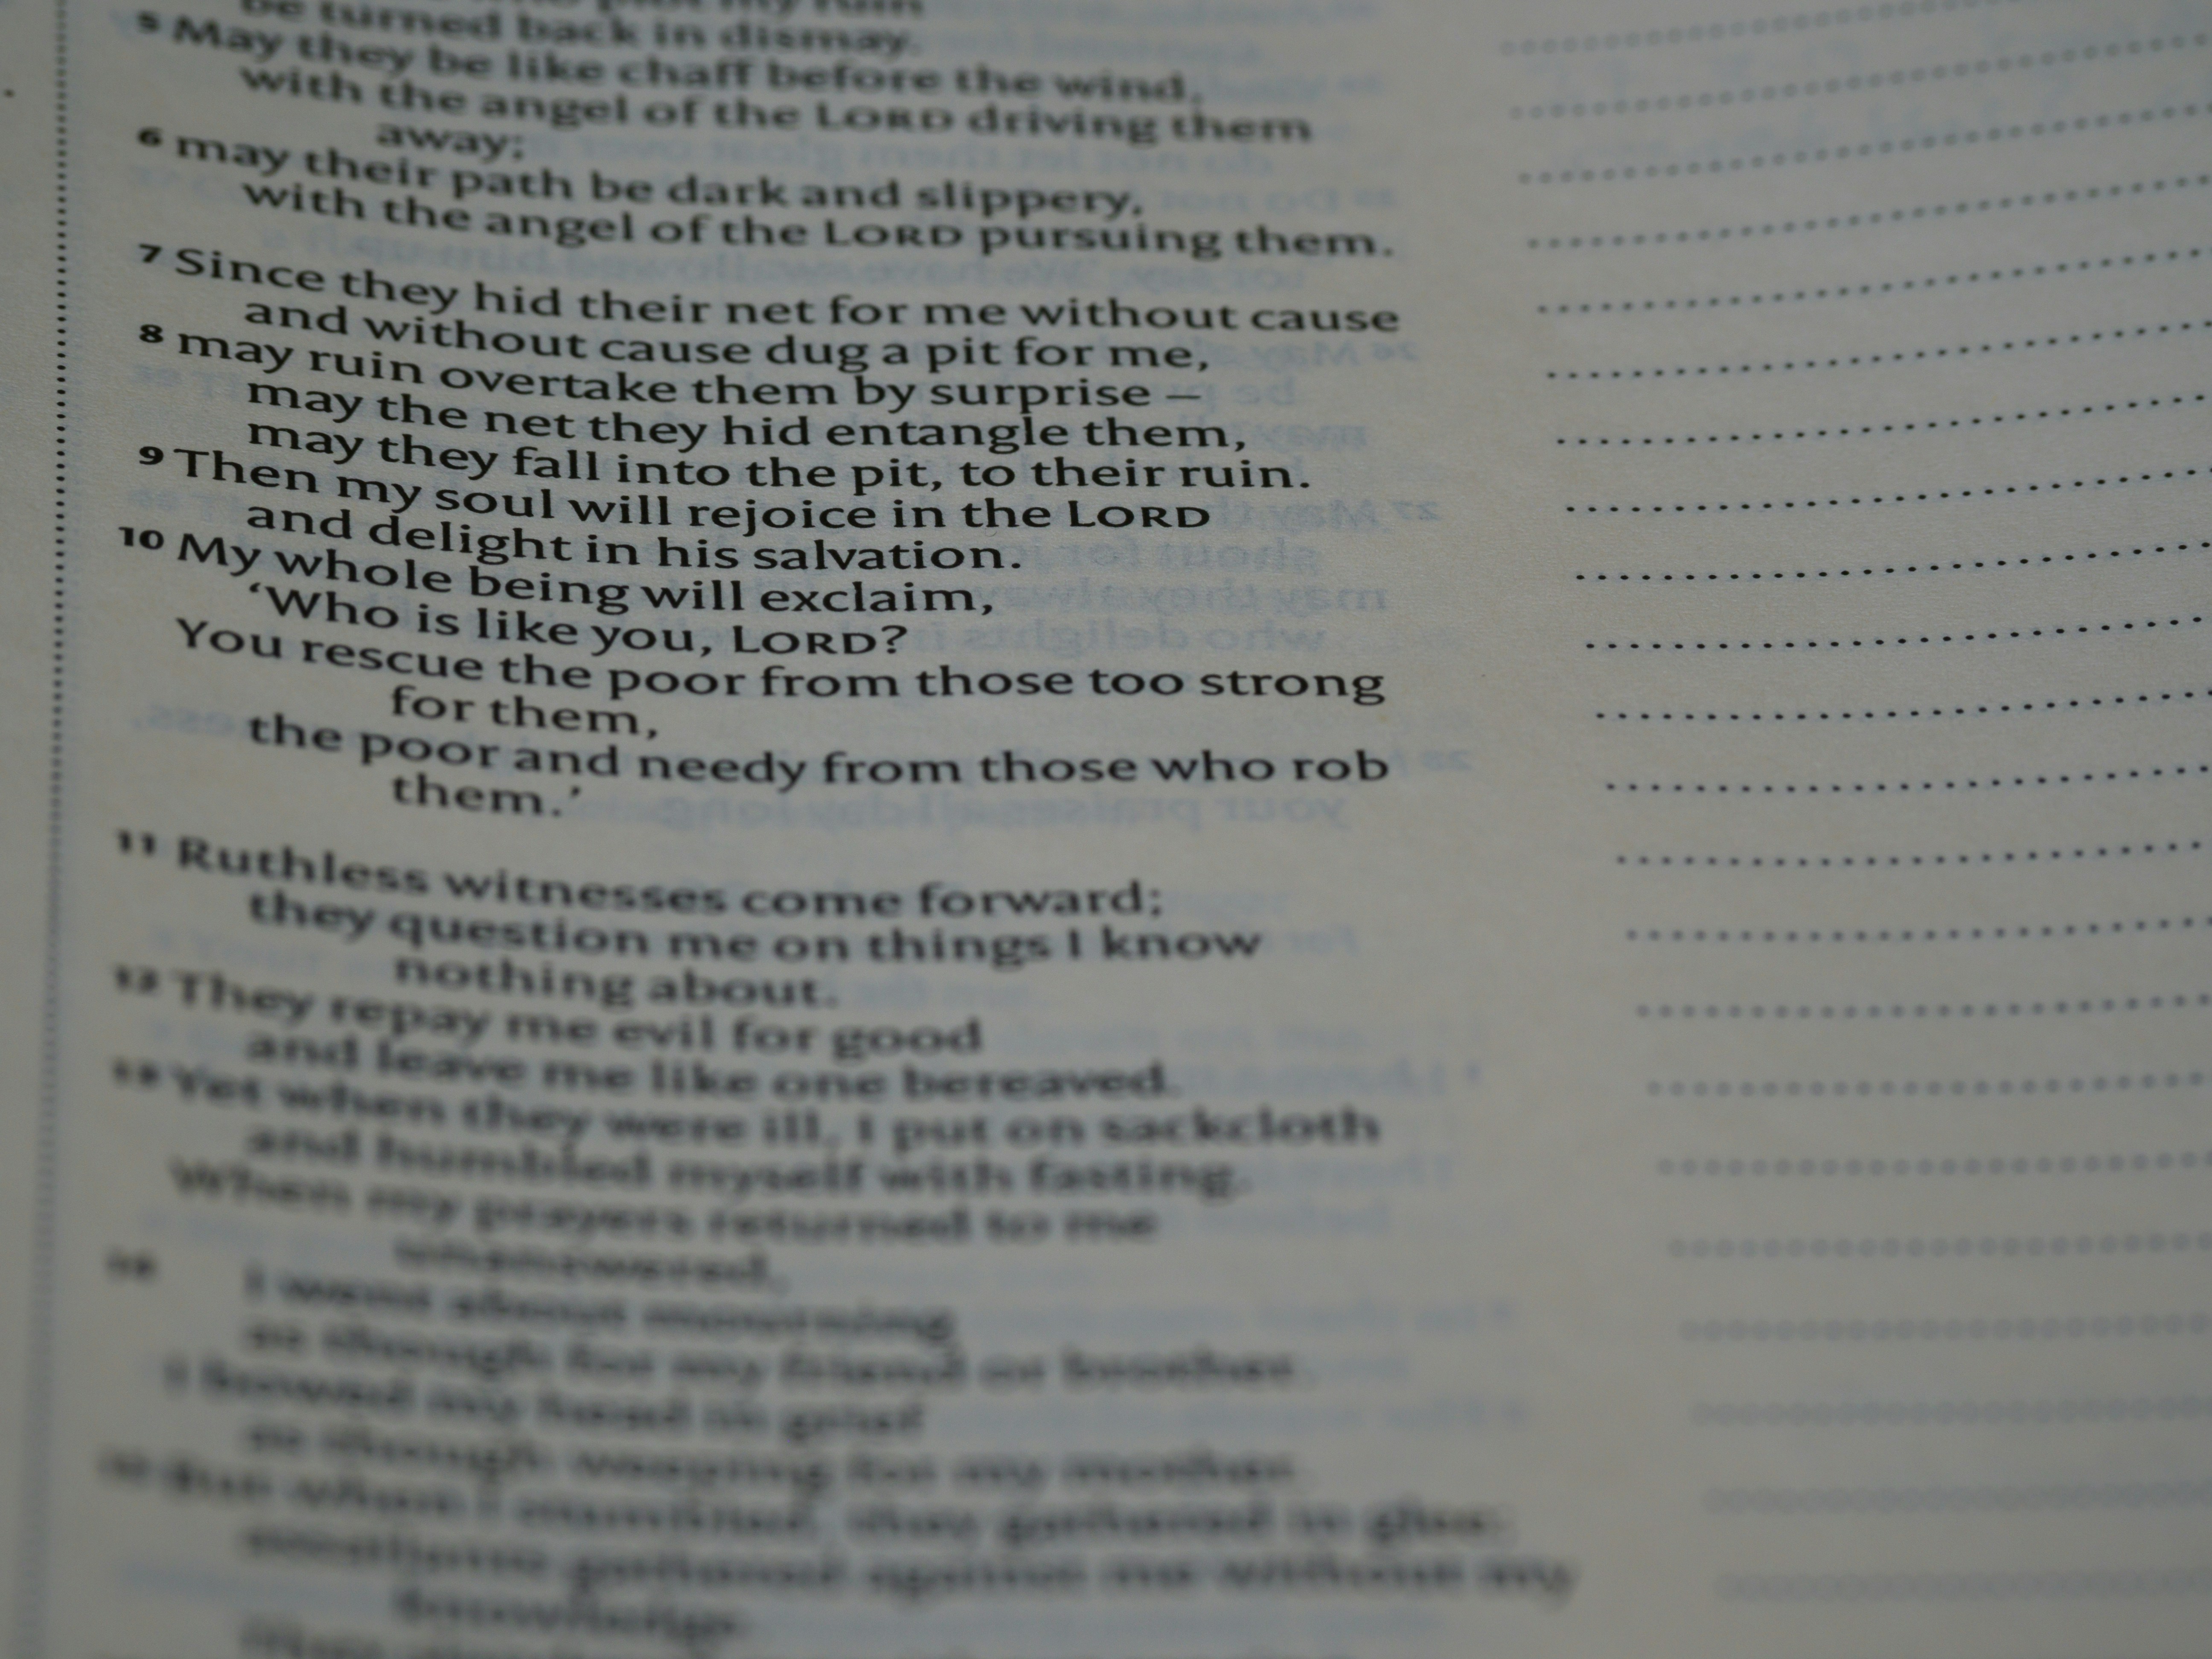 my ruin
be turned back in dismay.
5 May they be like chaff before the wind,
with the angel of the LORD driving them
away;
6 may their path be dark and slippery,
with the angel of the LORD pursuing them.
7 Since they hid their net for me without cause
and without cause dug a pit for me,
8 may ruin overtake them by surprise –
may the net they hid entangle them,
may they fall into the pit, to their ruin.
9 Then my soul will rejoice in the LORD
and delight in his salvation.
10 My whole being will exclaim,
‘Who is like you, LORD?
You rescue the poor from those too strong
for them,
the poor and needy from those who rob
them.’
11 Ruthless witnesses come forward;
they question me on things I know
nothing about.
12 They repay me evil for good
and leave me like one bereaved.
13 Yet when they were ill, I put on sackcloth
and humbled myself with fasting.
When my prayers returned to me
unanswered,
I went about mourning
as though for my friend or brother.
I bowed my head in grief
as though weeping for my mother.
But when I stumbled, they gathered in glee;
gathered against me without my